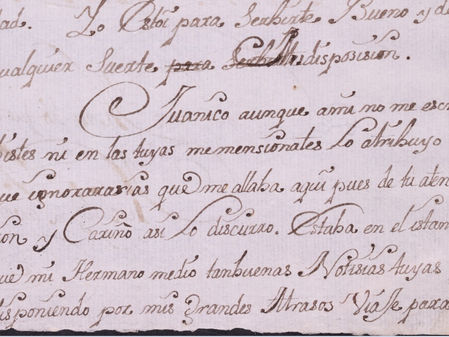 dad. Yo Estoi para Serbirte Bueno y de
qualquier Suerte para disposision.
Juanico aunque ami no me escri
bistes ni en las tuyas me mensionales Lo atribuyo
que ignorararias que me allaba aqui pues de tu aten
sion y Cariño asi Lo discurro. Estaba en el istan
que mi Hermano medio tanbuenas Notisias tuyas
disponiendo por mis grandes Atrasos Viaje para